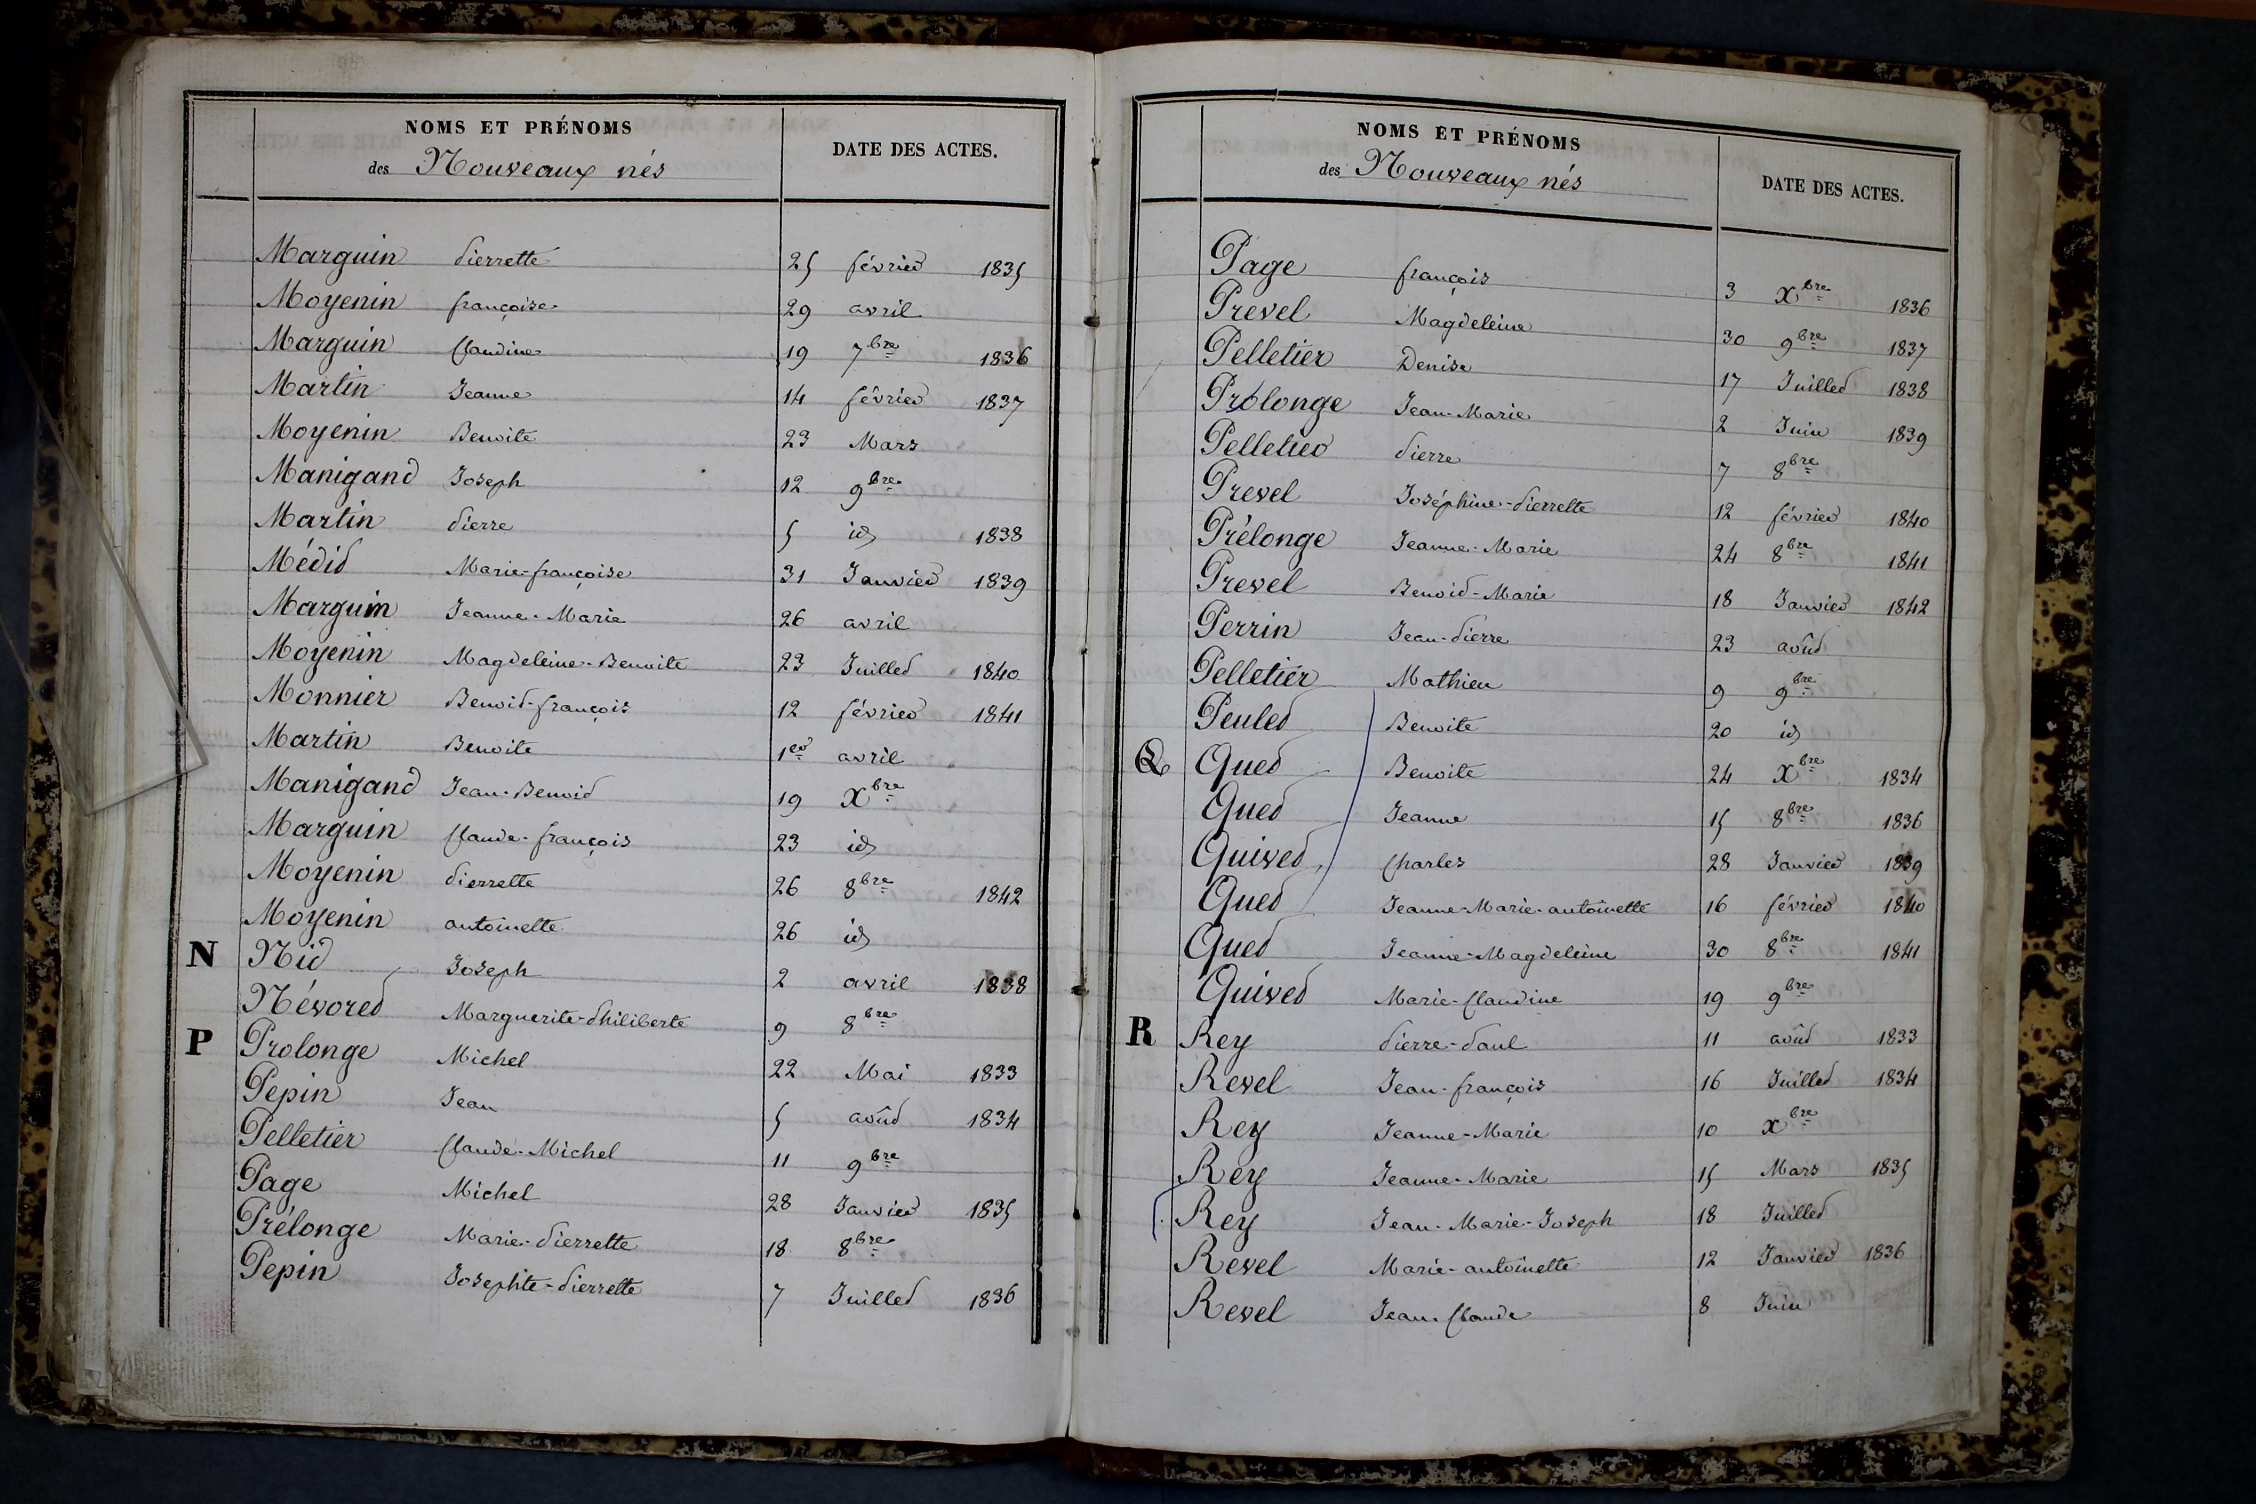 NOMS ET PRÉNOMS
des Nouveaux nés
DATE DES ACTES.
Marguin Pierrette 25 février 1835
Moyenin françoise 29 avril
Marguin Claudine 19 7bre 1836
Martin Jeanne 14 février 1837
Moyenin Benoite 23 Mars
Manigand Joseph 12 9bre
Martin Pierre 5 id 1838
Médit Marie-françoise 31 Janvier 1839
Marguin Jeanne-Marie 26 avril
Moyenin Magdeleine-Benoite 23 Juillet 1840
Monnier Benoit-françois 12 février 1841
Martin Benoite 1er avril
Manigand Jean-Benoit 19 Xbre
Marguin Claude-françois 23 id
Moyenin Pierrette 26 8bre 1842
Moyenin antoinette 26 id
N Nid Joseph 2 avril 1838
Névoret Marguerite-Philiberte 9 8bre
P Prolonge Michel 22 Mai 1833
Pepin Jean 5 août 1834
Pelletier Claude-Michel 11 9bre
Page Michel 28 Janvier 1835
Prélonge Marie-Pierrette 18 8bre
Pepin Josephte-Pierrette 7 Juillet 1836
NOMS ET PRÉNOMS
des Nouveaux nés
DATE DES ACTES.
Page françois 3 Xbre 1836
Prevel Magdeleine 30 9bre 1837
Pelletier Denise 17 Juillet 1838
Prolonge Jean-Marie 2 Juin 1839
Pelletier Pierre 7 8bre
Prevel Joséphine-Pierrette 12 février 1840
Prélonge Jeanne-Marie 24 8bre 1841
Prevel Benoit-Marie 18 Janvier 1842
Perrin Jean-Pierre 23 août
Pelletier Mathieu 9 9bre
Peulet Benoite 20 id
Q Quet Benoite 24 Xbre 1834
Quet Jeanne 15 8bre 1836
Quivet Charles 28 Janvier 1839
Quet Jeanne-Marie-antoinette 16 février 1840
Quet Jeanne-Magdeleine 30 8bre 1841
Quivet Marie-Claudine 19 9bre
R Rey Pierre-Paul 11 août 1833
Revel Jean-françois 16 Juillet 1834
Rey Jeanne-Marie 10 Xbre
Rey Jeanne-Marie 15 Mars 1835
Rey Jean-Marie-Joseph 18 Juillet
Revel Marie-antoinette 12 Janvier 1836
Revel Jean-Claude 8 Juin